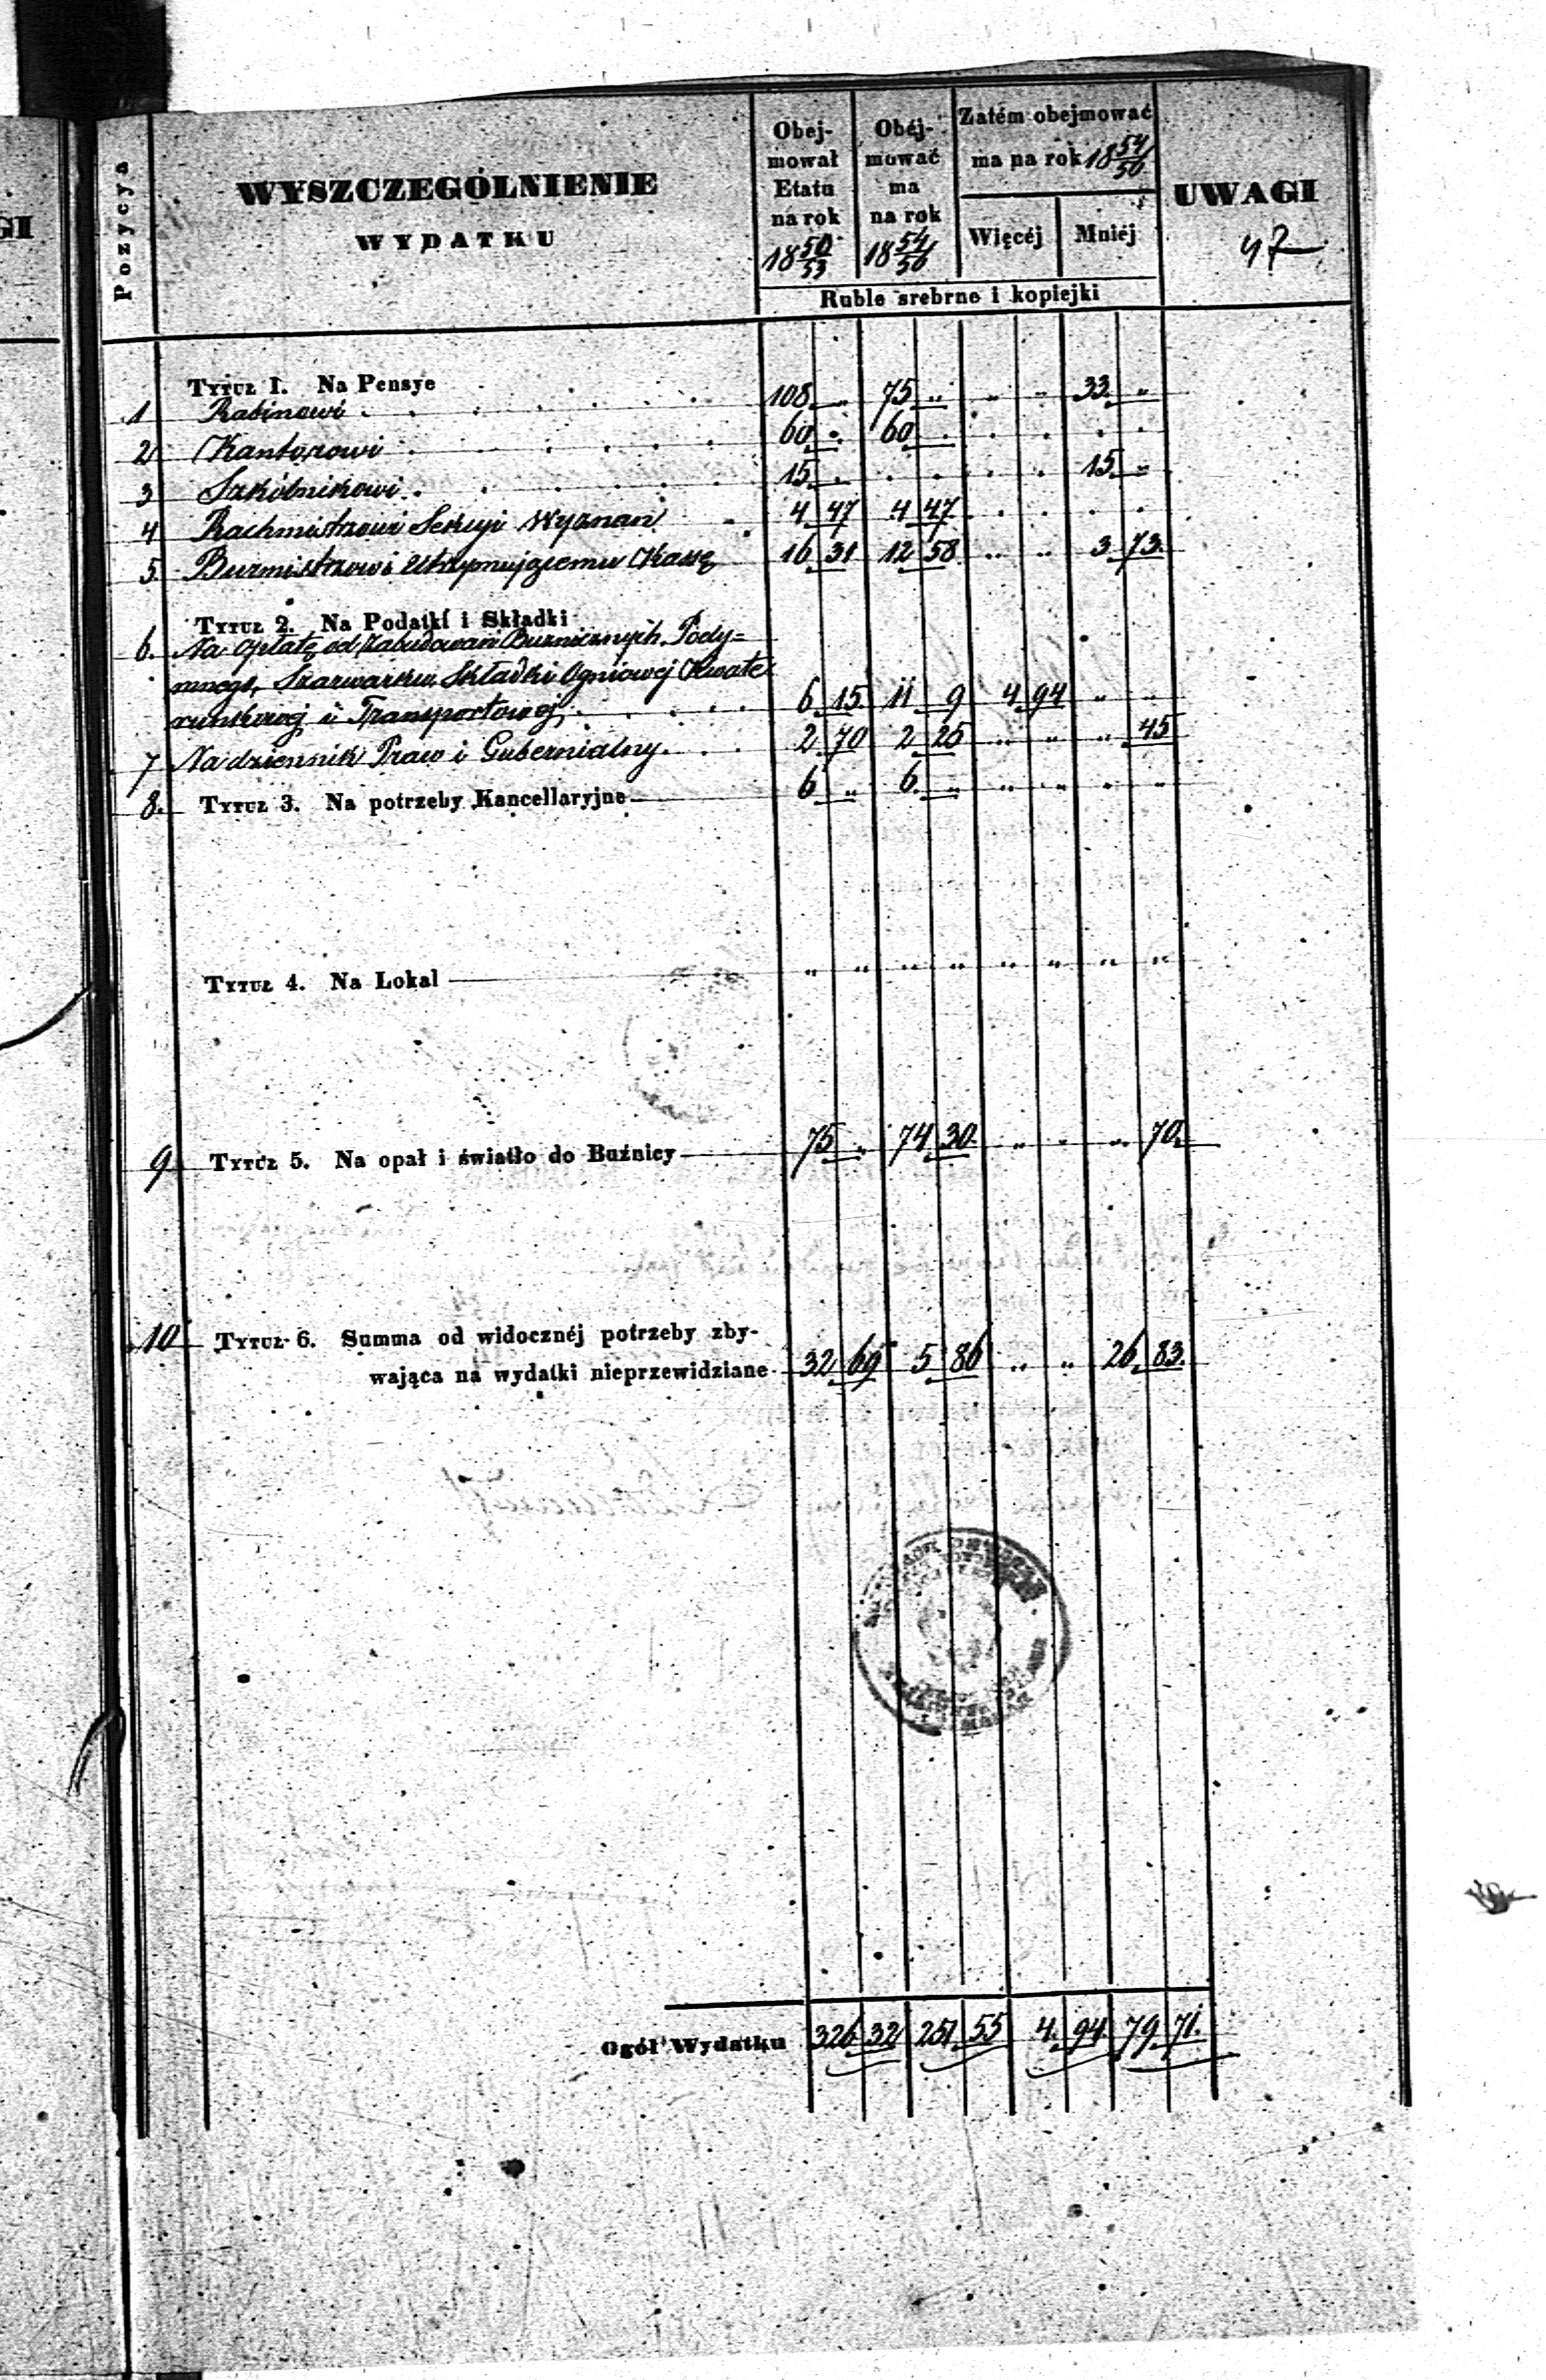 GI
Pozycya
WYSZCZEGÓLNIENIE
WYDATKU
Obej-
mował
Etatu
na rok
18 50/53
Obej-
mować
ma
na rok
18 54/56
Zatém obejmować
ma na rok 18 54/56
Więcéj
Mniéj
UWAGI
47
Ruble srebrne i kopiejki
Tytuł 1. Na Pensye
1 Rabinowi 108 „ 75 „ „ „ 33 „
2 Kantorowi 60 . 60 . . . . .
3 Szkólnikowi 15 . . . . . 15 „
4 Rachmistrzowi Sekcyi Wyznań 4 47 4 47 . . . .
5 Burmistrzowi utrzymującemu Kassę 16 31 12 58 „ „ 3 73
Tytuł 2. Na Podatki i Składki
6. Na opłatę od Zabudowań Buznicznych Pody=
mnego, Szarwarku, Składki Ogniowej Kwate
runkowej i Transportowej 6 15 11 9 4 94 „ „
7 Na dziennik Praw i Gubernialny 2 70 2 25 „ „ „ 45
8. Tytuł 3. Na potrzeby Kancellaryjne 6 „ 6 „ „ „ „ „
Tytuł 4. Na Lokal „ „ „ „ „ „ „ „
9 Tytuł 5. Na opał i światło do Buźnicy 75 „ 74 30 „ „ „ 70
10 Tytuł 6. Summa od widocznéj potrzeby zby-
wająca na wydatki nieprzewidziane 32 69 5 86 „ „ 26 83
Ogół Wydatku 326 32 251 55 4 94 79 71